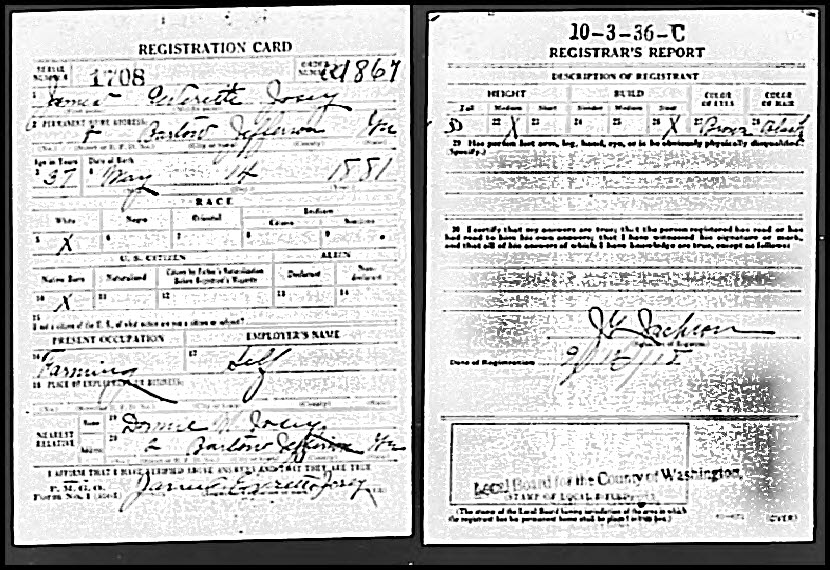 REGISTRATION CARD
SERIAL NUMBER 1708 ORDER NUMBER 1867
1 James Everette Josey
2 PERMANENT HOME ADDRESS:
2 Bartow Jefferson
(No.) (Street or R. F. D. No.) (City or town) (County) (State)
Age in Years Date of Birth
3 37 4 May 14 1881
RACE
White Negro Oriental Indian
Citizen Noncitizen
5 X 6 7 8 9
U. S. CITIZEN ALIEN
Native Born Naturalized Citizen by Father's Naturalization Before Registrant's Majority Declarant Non-declarant
10 X 11 12 13 14
15
If not a citizen of the U. S., of what nation are you a citizen or subject?
PRESENT OCCUPATION EMPLOYER'S NAME
16 Farming 17 Self
18 PLACE OF EMPLOYMENT OR BUSINESS:
(No.) (Street or R. F. D. No.) (City or town) (County) (State)
NEAREST RELATIVE
Name 19 Josey
Address 20 2 Bartow Jefferson
I AFFIRM THAT I HAVE VERIFIED ABOVE ANSWERS AND THAT THEY ARE TRUE
P. M. G. O.
Form No. 1 James Everette Josey
10-3-36-C
REGISTRAR'S REPORT
DESCRIPTION OF REGISTRANT
HEIGHT BUILD COLOR OF EYES COLOR OF HAIR
Tall Medium Short Slender Medium Stout
22 X 23 24 25 26 X 27 Brown 28 Black
29 Has person lost arm, leg, hand, eye, or is he obviously physically disqualified?
(Specify.)
30 I certify that my answers are true; that the person registered has read or has
had read to him his own answers; that I have witnessed his signature or mark,
and that all of his answers of which I have knowledge are true, except as follows:
Jackson
(Signature of Registrar)
Date of Registration
Local Board for the County of Washington,
STAMP OF LOCAL BOARD
(The stamp of the Local Board having jurisdiction of the area in which
the registrant has his permanent home shall be placed in this box.)
(OVER)